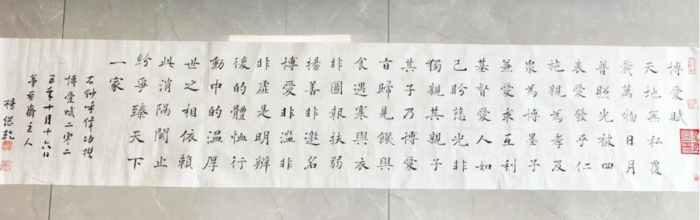 博愛賦
天地無私覆
載萬物日月
普照光被四
表愛發乎仁
施親孝及
衆為博墨子
兼愛求互利
基督愛人如
己盼慈光非
獨親其親子
其子乃博愛
見餒與
食遇寒與衣
非圖報扶弱
揚善非邀名
博愛非濫非
非虛是明辨
後的體恤行
動中的温厚
世之相依賴
此消隔閡止
紛爭臻天下
一家
右鈔偉功撰
博愛賦二零二
五年十月十六日
齋主人